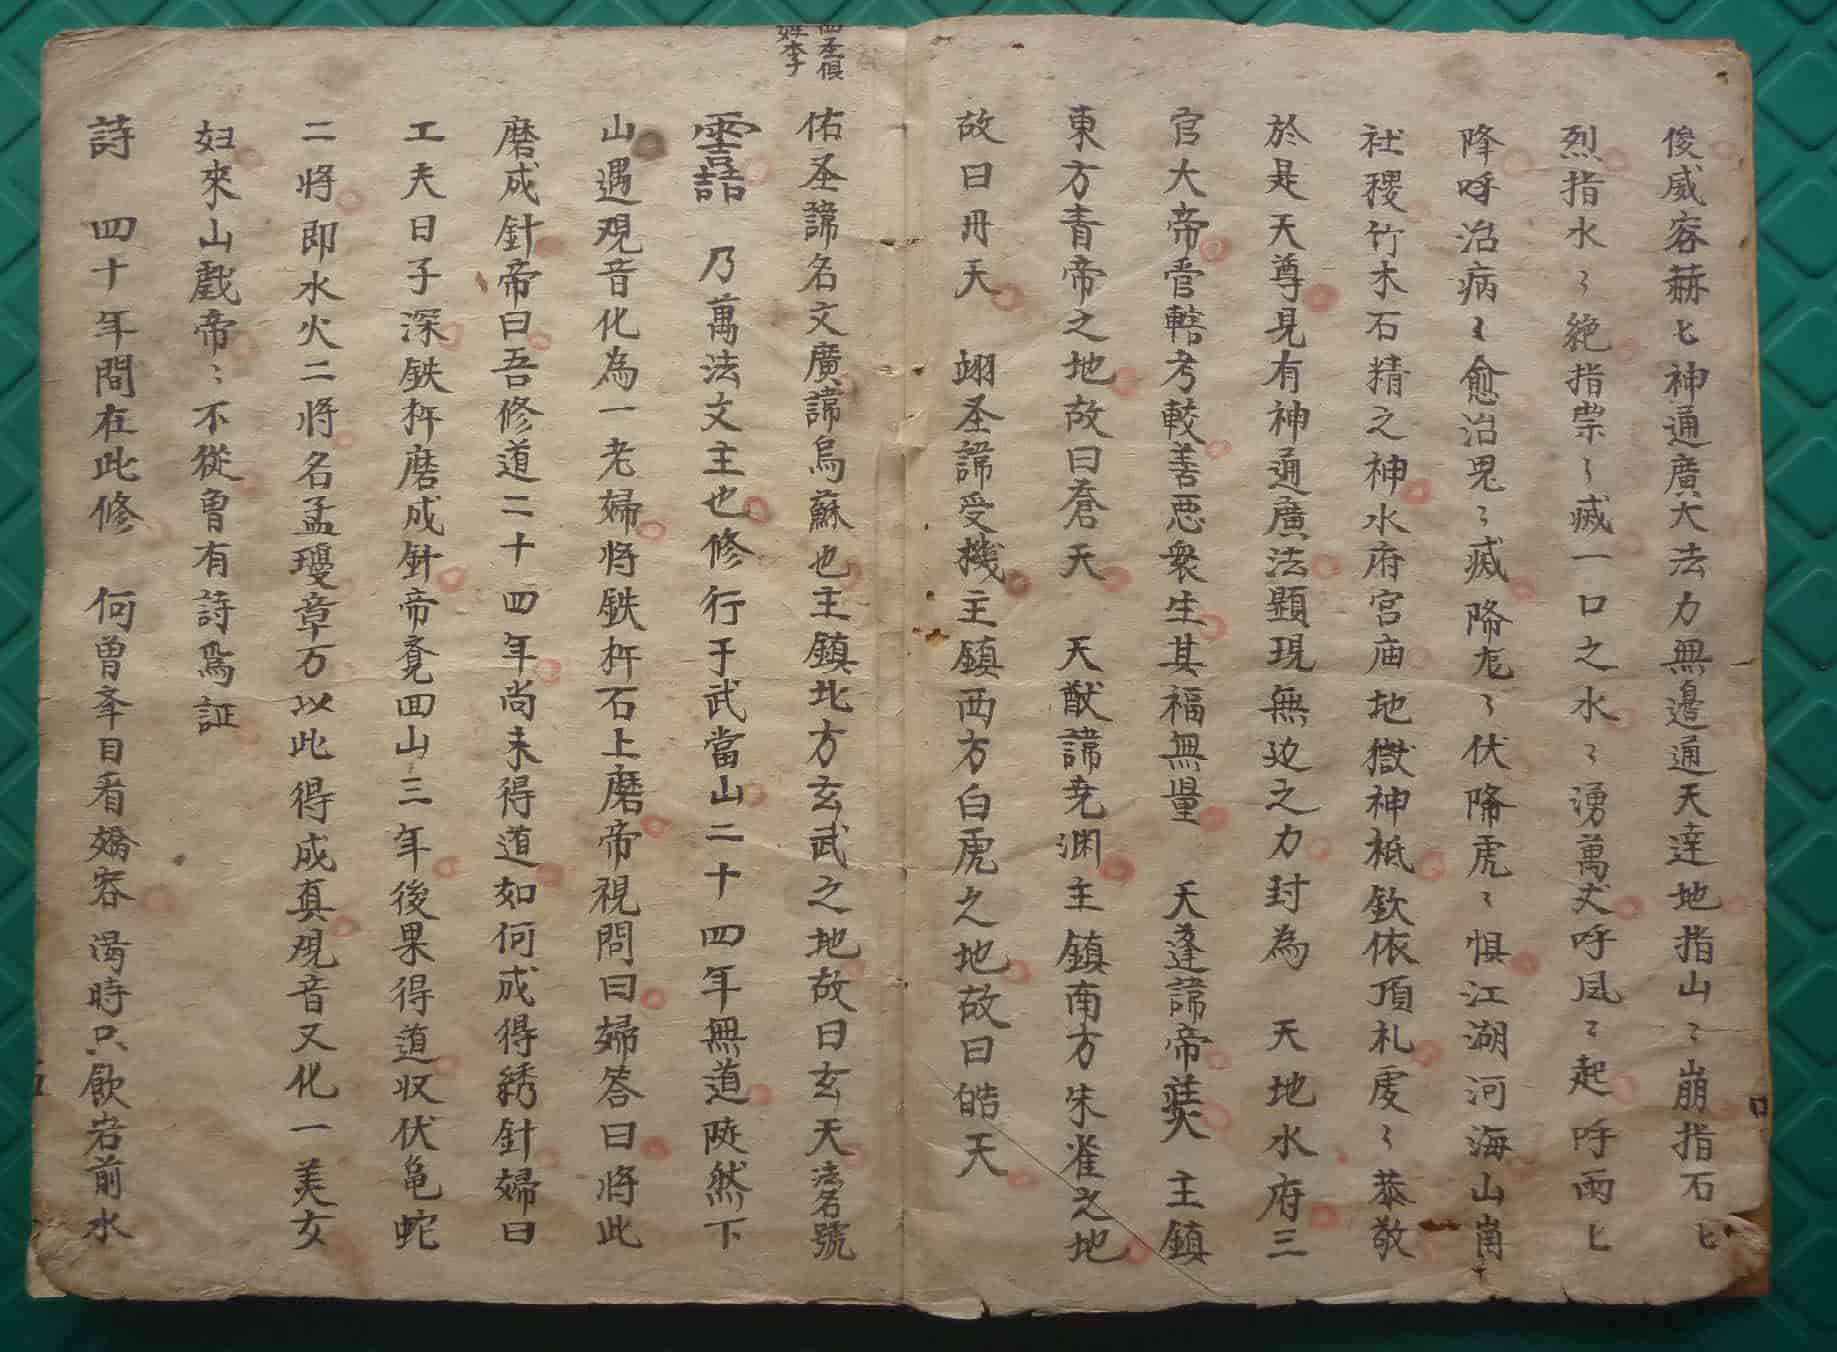 俊威容赫匕神通廣大法力無邊通天達地指山〻崩指石匕
烈指水〻絶指祟〻滅一口之水〻湧萬丈呼風〻起呼雨匕
降呼治病〻愈治鬼〻滅降龙〻伏降虎〻惧江湖河海山崗
社稷竹木石精之神水府宫庙地獄神祇欽依頂礼虔〻恭敬
於是天尊見有神通廣法顕現無边之力封為 天地水府三
官大帝管轄考較善悪衆生其福無量 天蓬諱帝 主鎮
東方青帝之地故曰蒼天 天猷諱尭渊主鎮南方朱雀之地
故曰丹天 翊圣諱受機主鎮西方白虎之地故曰皓天
四圣俱
姓李
佑圣諱名文廣諱烏蘇也主鎮北方玄武之地故曰玄天法名號
乃萬法文主也修行于武當山二十四年無道陡然下
山遇观音化為一老婦将鉄杵石上磨帝視問曰婦答曰将此
磨成針帝曰吾修道二十四年尚未得道如何成得綉針婦曰
工夫日子深鉄杵磨成針帝覔回山三年後果得道収伏亀蛇
二将即水火二将名孟瓊章万以此得成真观音又化一美女
妇來山戲帝〻不從曾有詩為証
詩 四十年間在此修 何曽奉目看嬌容 渴時只飲岩前水